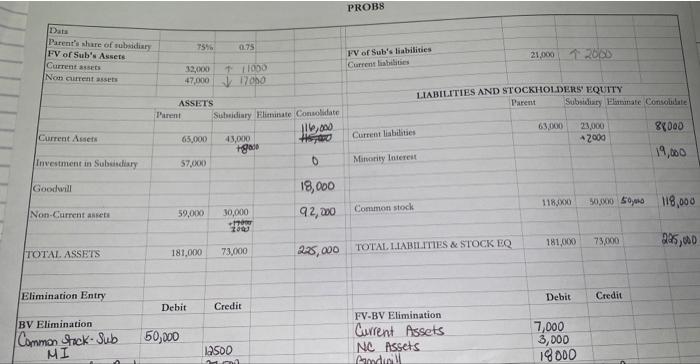 PROB8
Data
Parent's share of subsidiary 75% 0.75
FV of Sub's Assets
Current assets 32,000 ↑ 11000
Non current assets 47,000 ↓ 17000
FV of Sub's liabilities
Current liabilities 21,000 ↑ 2000
ASSETS
Parent Subsidiary Eliminate Consolidate
116,000
Current Assets 65,000 43,000
+8000
Investment in Subsidiary 57,000 0
Goodwill 18,000
Non-Current assets 59,000 30,000 92,000
TOTAL ASSETS 181,000 73,000 225,000
LIABILITIES AND STOCKHOLDERS' EQUITY
Parent Subsidiary Eliminate Consolidate
Current liabilities 63,000 23,000 88000
+2000
Minority Interest 19,000
Common stock 118,000 50,000 50,000 118,000
TOTAL LIABILITIES & STOCK EQ 181,000 73,000 225,000
Elimination Entry
Debit Credit
BV Elimination
Common Stock-Sub 50,000
MI 12500
Debit Credit
FV-BV Elimination
Current Assets 7,000
NC Assets 3,000
18000